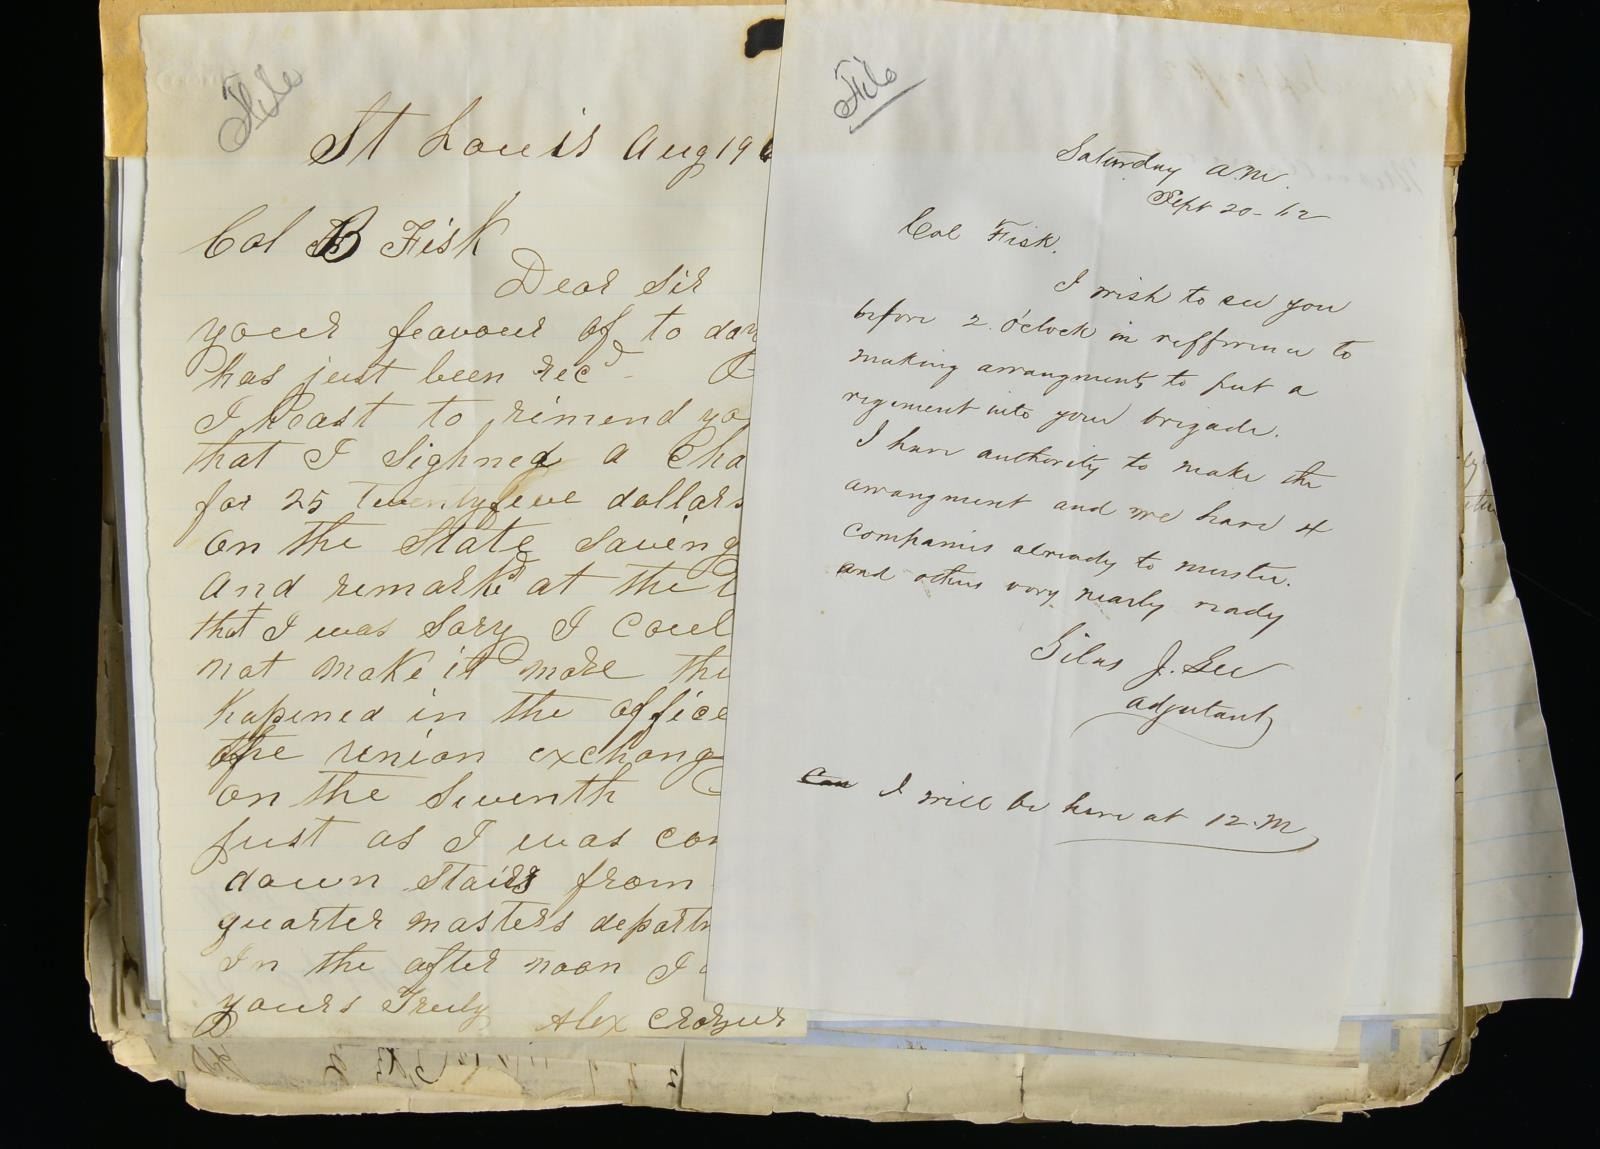 File
St Louis Aug 19
Col B Fisk
Dear Sir
your feavour of to day
has just been rec^d
I beast to rimend yo
that I Sighned a Cha
for 25 Twentyfeve dollars
on the State Saveing
and remark^d at the t
that I was Sory I Coul
not make it more thi
hapened in the office
of the union exchang
on the Seventh
just as I was com
down stairs from
quarter masters departm
In the after noon I
yours Truly
Alex
File
Saturday A.M.
Sept 20 - 62
Col Fisk.
I wish to see you
before 2. O'clock in refference to
making arrangments to put a
regiment into your brigade.
I have authority to make the
arrangment and we have 4
companies already to muster.
and others very nearly ready
Silas J. Gee
Adjutant
Can I will be here at 12. M